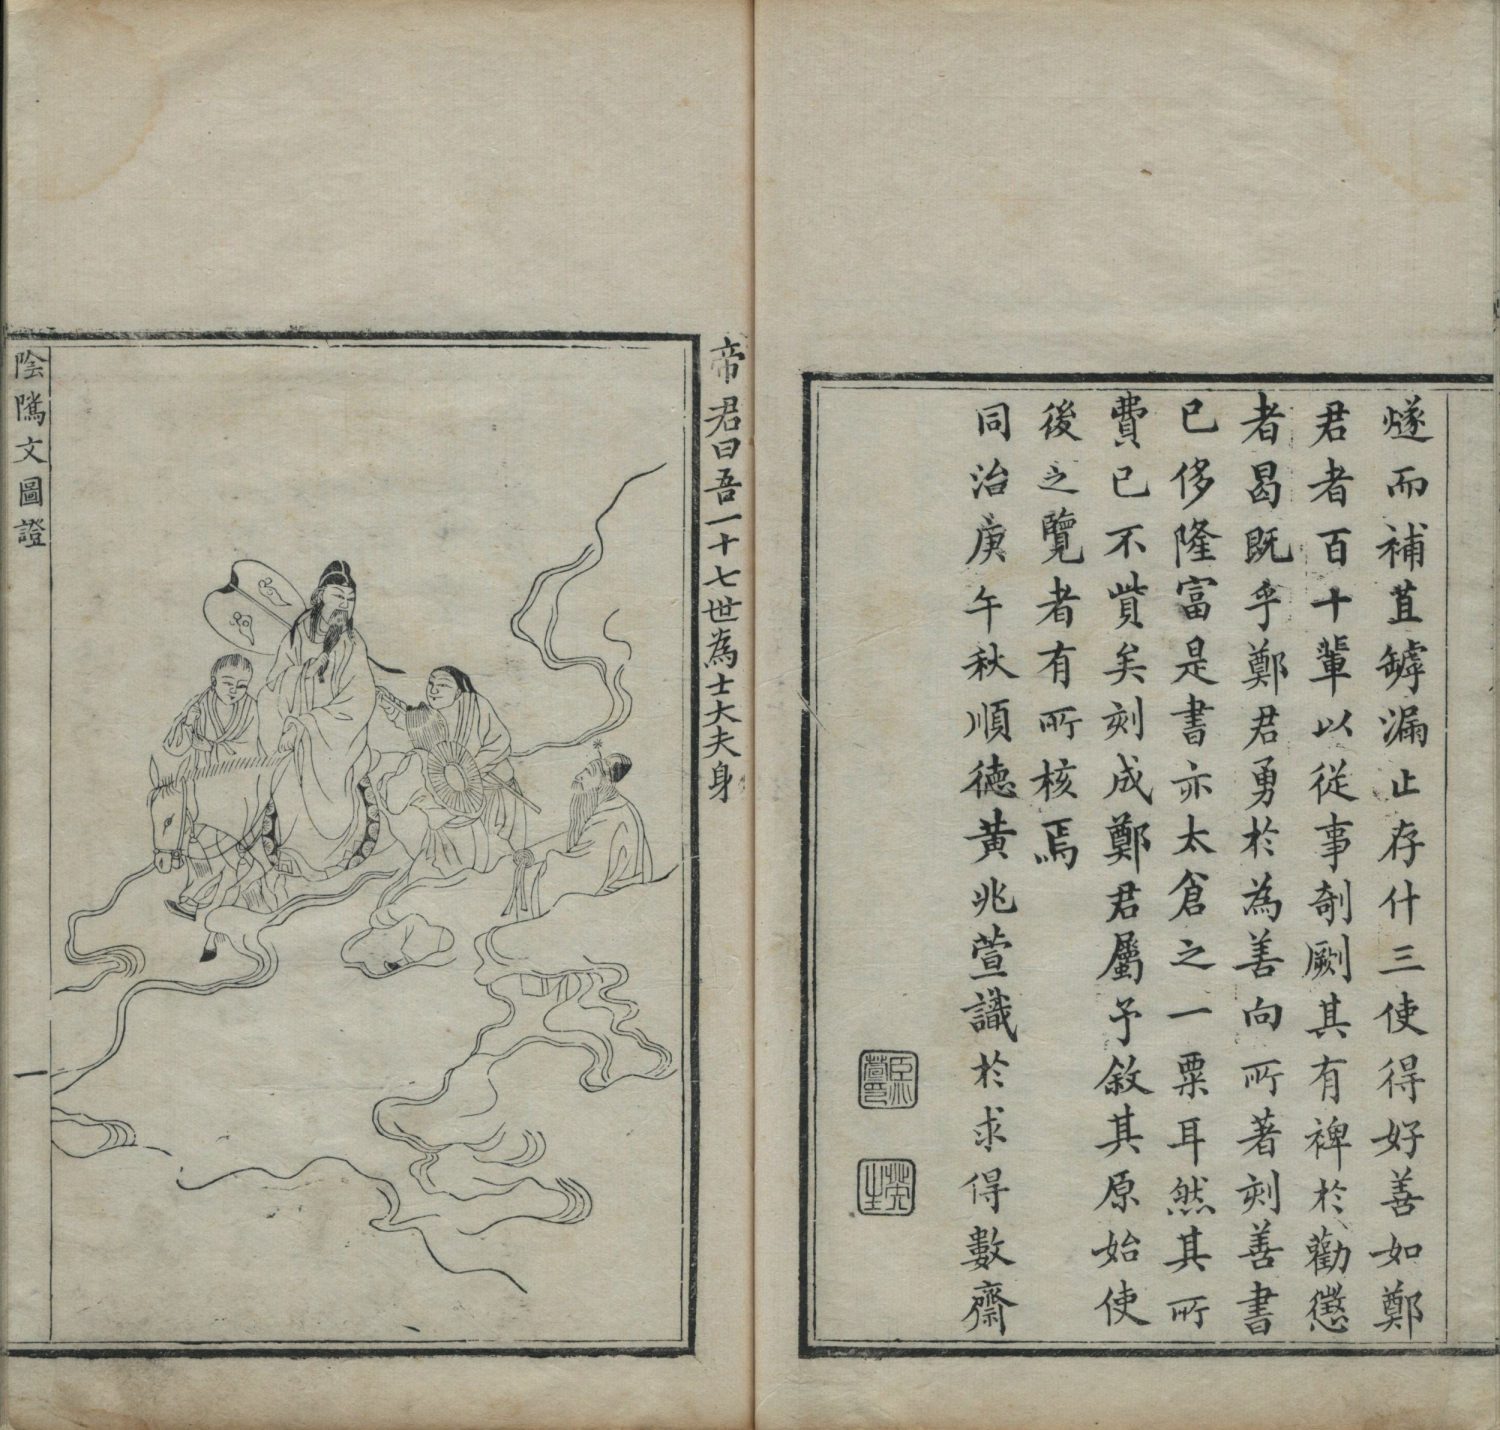 燧而補苴罅漏止存什三使得好善如鄭
君者百十輩以從事剞劂其有裨於勸懲
者曷既乎鄭君勇於為善向所著刻善書
已侈隆富是書亦太倉之一粟耳然其所
費已不貲矣刻成鄭君屬予敘其原始使
後之覽者有所核焉
同治庚午秋順德黃兆萱識於求得數齋
帝君曰吾一十七世為士大夫身
陰隲文圖證
一